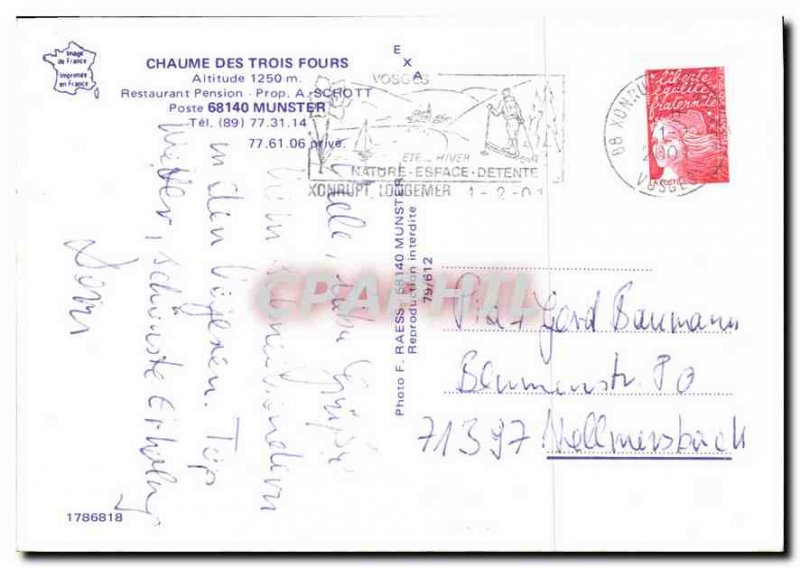 Image
de France
Imprimée
en France
CHAUME DES TROIS FOURS
Altitude 1250 m.
Restaurant Pension - Prop. A. SCHOTT
Poste 68140 MUNSTER
Tél. (89) 77.31.14
77.61.06 privé.
E
X
A
VOSGES
ETE... HIVER
NATURE-ESPACE-DETENTE
XONRUPT LONGEMER 1-2-01
88 XONRU
1
200
VOSGES
liberté
égalité
fraternité
LA POSTE
Grüße
beim Schneewandern
in den Vogesen. Top
Wetter, schönste Erholung
Photo F. RAESS - 68140 MUNSTER
Reproduction interdite
79/612
Gerd Baumann
Blumenstr. 80
71397 Nellmersbach
1786818
CPARHTL